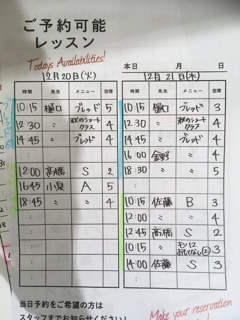 ご予約可能
レッスン
Today's Availabilities!
本日 月 日
12月20日(火)
12月21日(木)
時間 先生 メニュー 空席
10:15 樋口 ブレッド 5
12:30 〃 秋のショートクラス 4
14:45 〃 ブレッド 4
:
12:00 高橋 S 2
16:45 小泉 A 5
18:45 〃 〃 4
:
:
:
時間 先生 メニュー 空席
10:15 樋口 ブレッド 3
12:30 〃 秋のショートクラス 4
14:45 〃 ブレッド 4
16:00 〃 4
18:30 〃 〃 5
:
10:15 佐藤 B 3
12:15 〃 〃 4
12:45 高橋 S 2
10:15 〃 3
14:00 佐藤 S 3
:
当日予約をご希望の方は
スタッフまでお知らせください!
Make your reservation